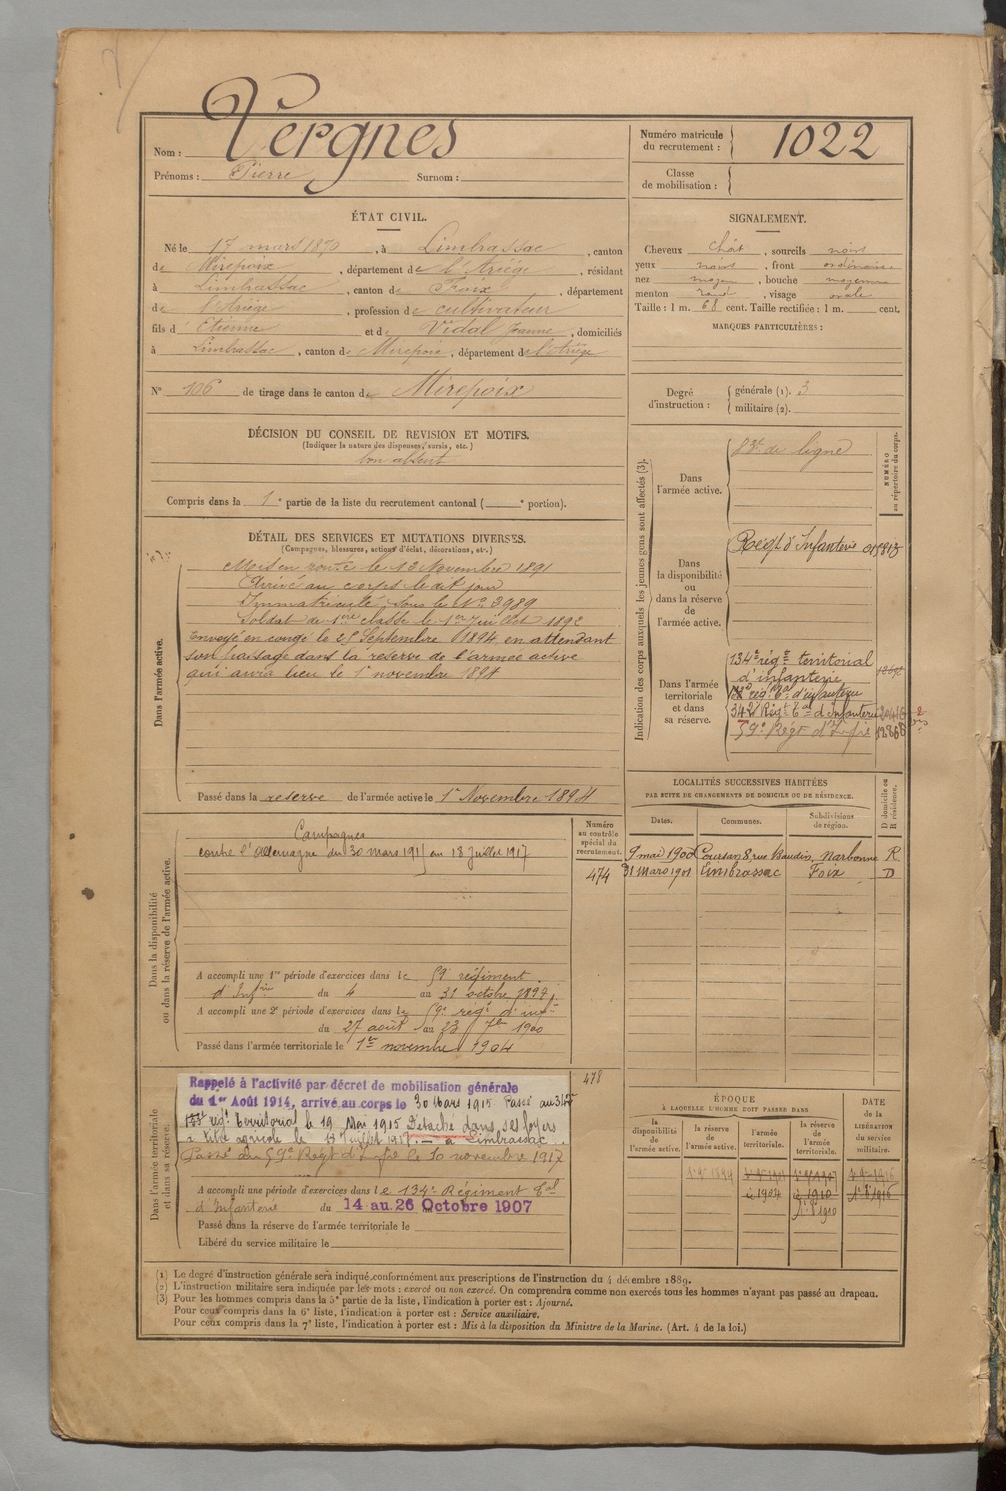 Vergnes
Nom :
Prénoms : Pierre Surnom :
Numéro matricule du recrutement : 1022
Classe de mobilisation :
ÉTAT CIVIL.
Né le 17 mars 1870, à Limbrassac, canton
de Mirepoix, département de l'Ariège, résidant
à Limbrassac, canton de Foix, département
de l'Ariège, profession de cultivateur
fils d' Etienne et de Vidal Jeanne, domiciliés
à Limbrassac, canton de Mirepoix, département de l'Ariège
N° 106 de tirage dans le canton de Mirepoix
SIGNALEMENT.
Cheveux chât, sourcils noirs
yeux noirs, front ordinaire
nez moyen, bouche moyenne
menton rond, visage ovale
Taille : 1 m. 68 cent. Taille rectifiée : 1 m. cent.
MARQUES PARTICULIÈRES :
Degré d'instruction : générale (1). 3
militaire (2).
DÉCISION DU CONSEIL DE REVISION ET MOTIFS.
(Indiquer la nature des dispenses, sursis, etc.)
bon absent
Compris dans la 1e partie de la liste du recrutement cantonal ( e portion).
DÉTAIL DES SERVICES ET MUTATIONS DIVERSES.
(Campagnes, blessures, actions d'éclat, décorations, etc.)
Dans l'armée active.
Mis en route le 13 Novembre 1891
Arrivé au corps le dit jour
Immatriculé sous le N° 3989
Soldat de 1ère classe le 1er Juillet 1892
Envoyé en congé le 25 Septembre 1894 en attendant
son passage dans la réserve de l'armée active
qui aura lieu le 1er novembre 1894
Passé dans la reserve de l'armée active le 1er Novembre 1894
Indication des corps auxquels les jeunes gens sont affectés (3).
NUMÉRO au répertoire du corps.
Dans l'armée active.
83e de ligne
Dans la disponibilité ou dans la réserve de l'armée active.
Régt d'Infanterie
Dans l'armée territoriale et dans sa réserve.
134e régt territorial
d'infanterie
régt tal d'infanterie
342e Régt tal d'Infanterie
59e Régt d'Infie
LOCALITÉS SUCCESSIVES HABITÉES
PAR SUITE DE CHANGEMENTS DE DOMICILE OU DE RÉSIDENCE.
Dates. Communes. Subdivisions de région. D domicile ou R résidence.
9 mai 1900 Coursan 8 rue Baudin, Narbonne R
31 Mars 1901 Limbrassac Foix D
Numéro au contrôle spécial du recrutement.
474
Dans la disponibilité ou dans la réserve de l'armée active.
Campagnes
contre l'Allemagne du 30 mars 1915 au 18 Juillet 1917
A accompli une 1re période d'exercices dans le 59e régiment
d'Infrie du 4 au 31 octobre 1897
A accompli une 2e période d'exercices dans le 59e regt d'inf
du 27 août au 23 7bre 1900
Passé dans l'armée territoriale le 1er novembre 1904
478
Dans l'armée territoriale et dans sa réserve.
Rappelé à l'activité par décret de mobilisation générale
du 1er Août 1914, arrivé au corps le 30 Mars 1915 Passé au 342e
régt territorial le 19 Mai 1915 Détaché dans ses foyers
à titre agricole le 18 Juillet 1917. — à Limbrassac
Passé au 59e Régt d'Infie le 10 novembre 1917
A accompli une période d'exercices dans le 134e Régiment tal
d'Infanterie du 14 au 26 Octobre 1907
Passé dans la réserve de l'armée territoriale le
Libéré du service militaire le
ÉPOQUE
À LAQUELLE L'HOMME DOIT PASSER DANS
la disponibilité de l'armée active. la réserve de l'armée active. l'armée territoriale. la réserve de l'armée territoriale.
DATE de la LIBÉRATION du service militaire.
(1) Le degré d'instruction générale sera indiqué conformément aux prescriptions de l'instruction du 4 décembre 1889.
(2) L'instruction militaire sera indiquée par les mots : exercé ou non exercé. On comprendra comme non exercés tous les hommes n'ayant pas passé au drapeau.
(3) Pour les hommes compris dans la 5e partie de la liste, l'indication à porter est : Ajourné.
Pour ceux compris dans la 6e liste, l'indication à porter est : Service auxiliaire.
Pour ceux compris dans la 7e liste, l'indication à porter est : Mis à la disposition du Ministre de la Marine. (Art. 4 de la loi.)